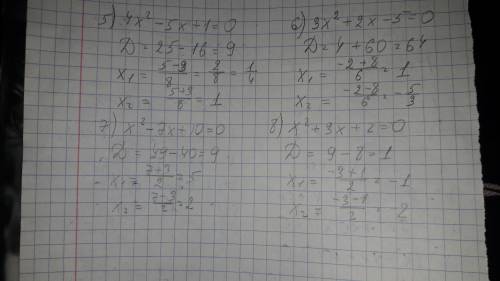 5) 4x² - 5x + 1 = 0
D = 25 - 16 = 9
x₁ = (5-3)/8 = 2/8 = 1/4
x₂ = (5+3)/8 = 1
6) 3x² + 2x - 5 = 0
D = 4 + 60 = 64
x₁ = (-2+8)/6 = 1
x₂ = (-2-8)/6 = -5/3
7) x² - 7x + 10 = 0
D = 49 - 40 = 9
x₁ = (7+3)/2 = 5
x₂ = (7-3)/2 = 2
8) x² + 3x + 2 = 0
D = 9 - 8 = 1
x₁ = (-3+1)/2 = -1
x₂ = (-3-1)/2 = -2